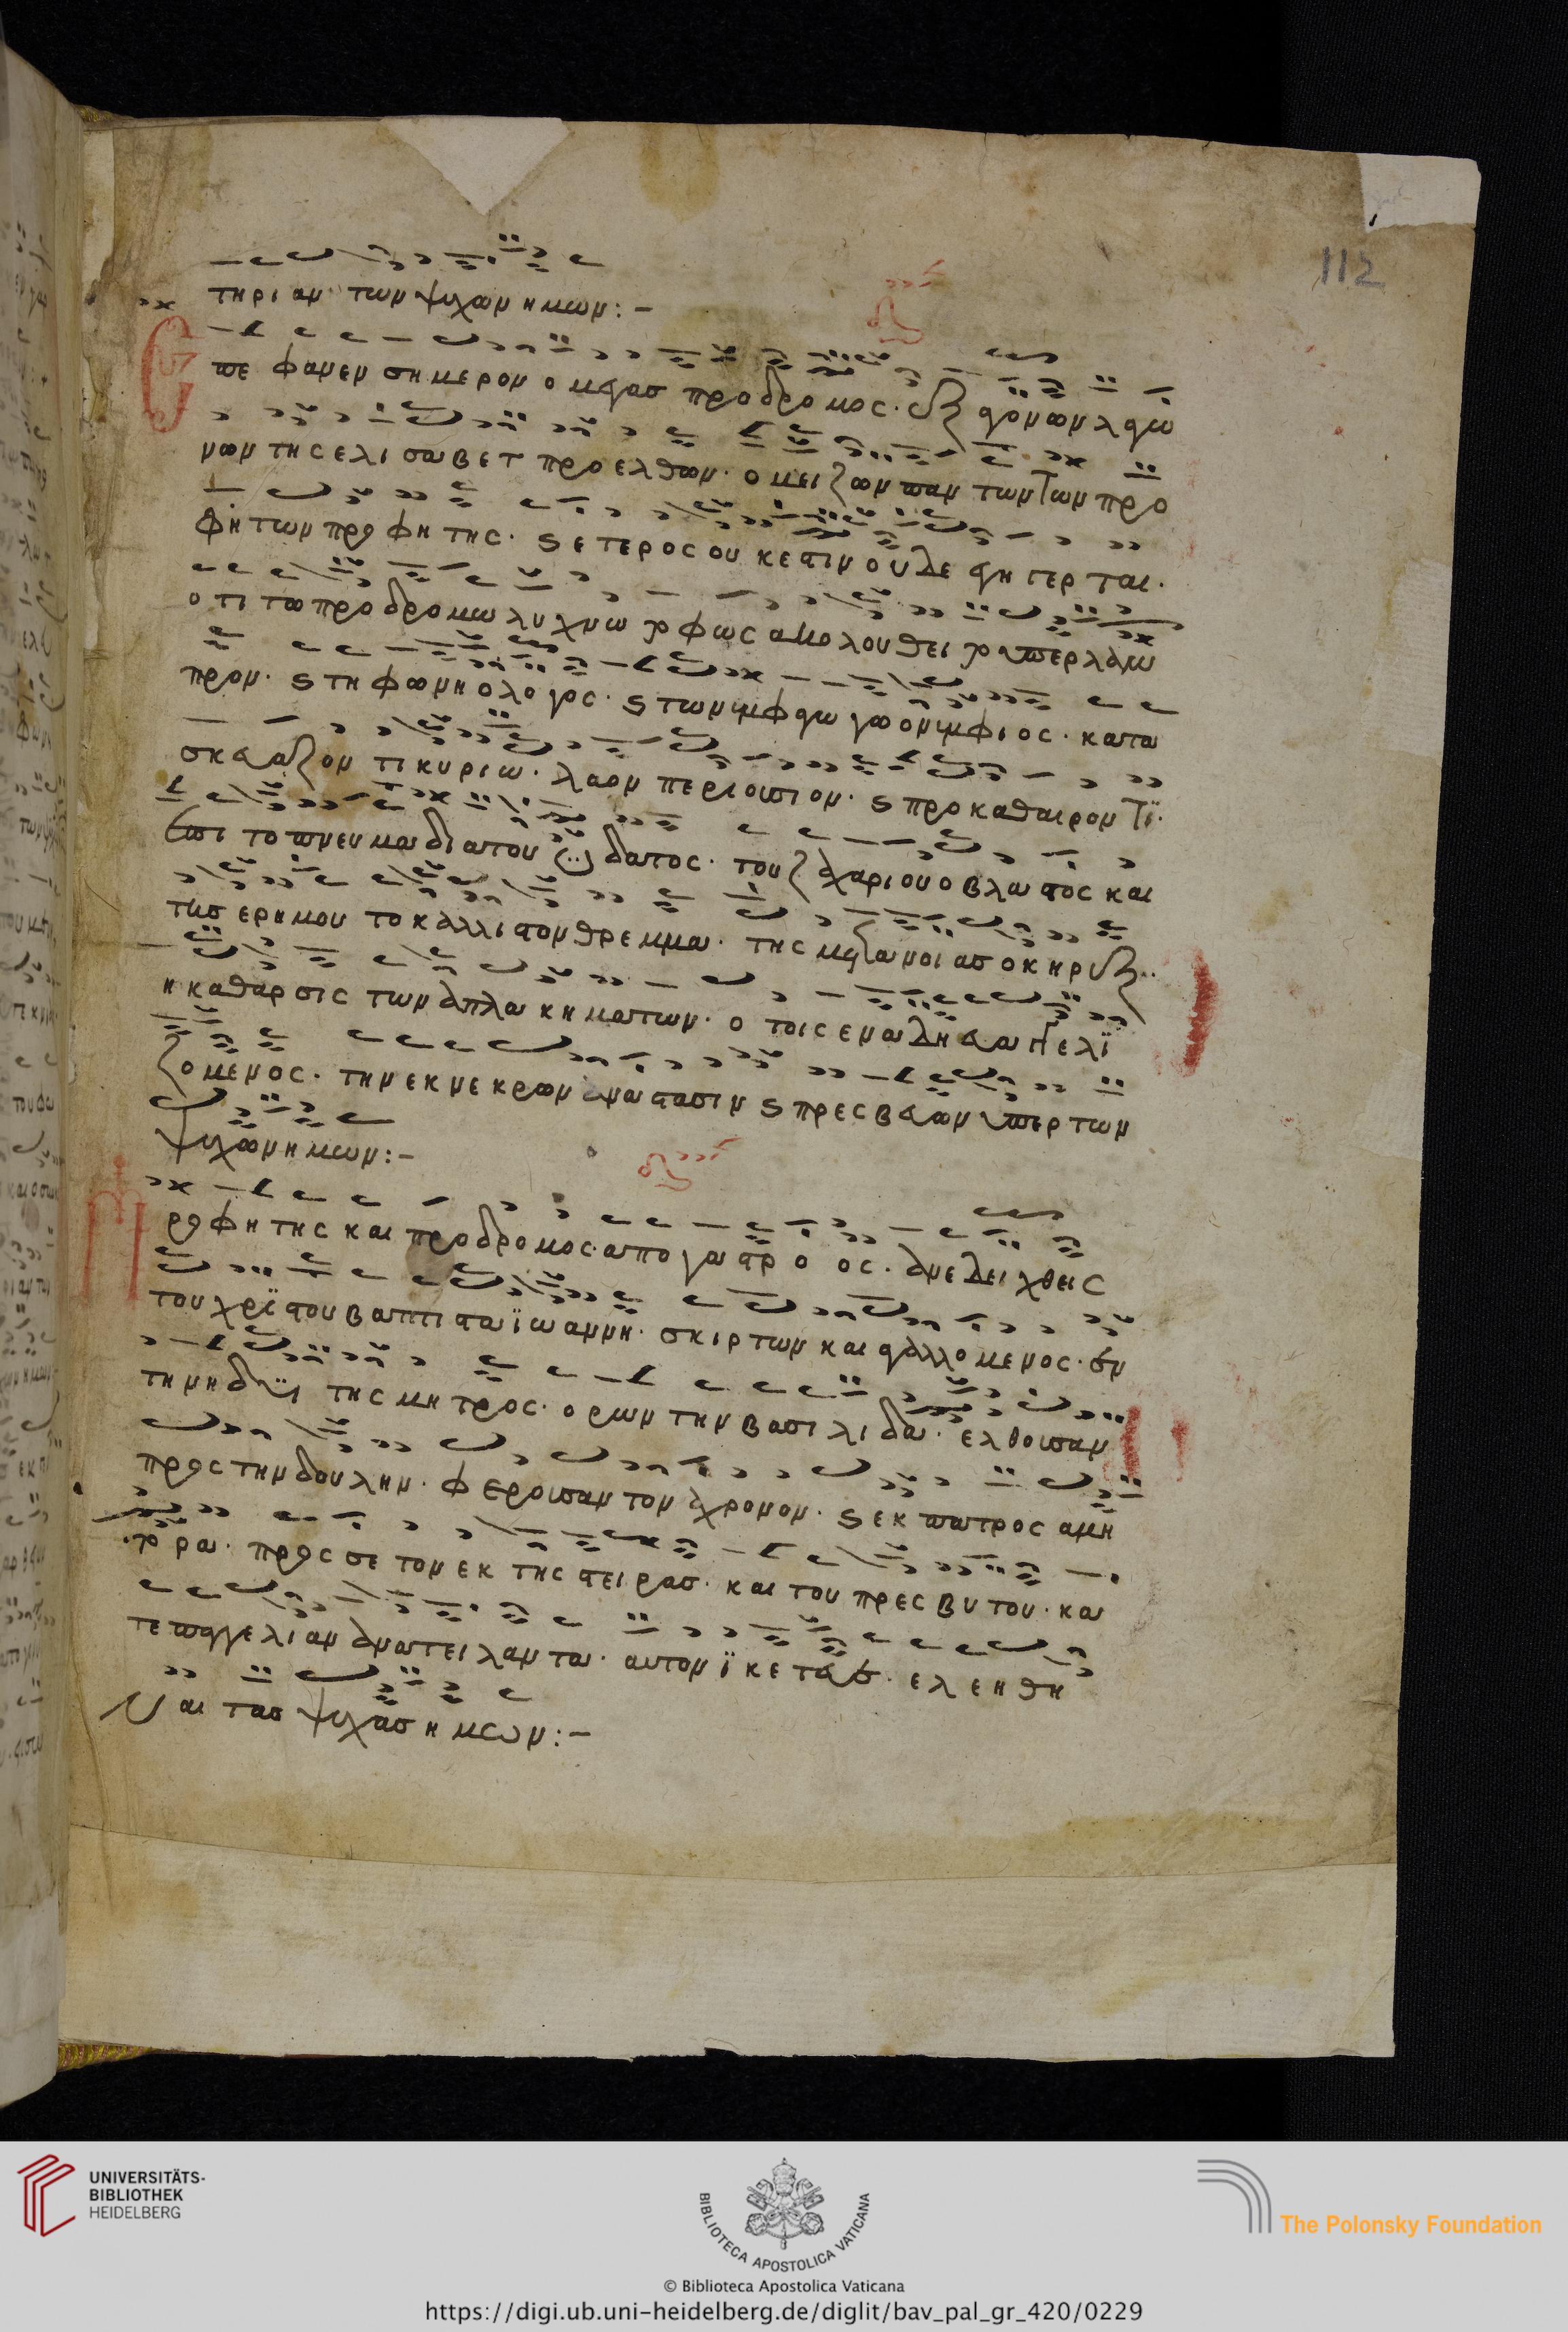 112
τηριαν των ψυχων ημων:–
Επεφανεν σημερον ο μεγας προδρομος· εξ αγονων λαγω
νων της ελισαβετ προελθων· ο μειζων παντων των προ
φητων προφητης· ϛ ετερος ουκ εστιν ουδε εγηγερται·
οτι τω προδρομω λυχνω το φως ακολουθει το υπερλαμ
προν· ϛ τη φωνη ο λογος· ϛ τω νυμφαγωγω ο νυμφιος· κατα
σκευαζοντι κυριω· λαον περιουσιον· ϛ προκαθαιροντι·
επι το πνευμα δια του ϋδατος· του ζαχαριου ο βλαστος και
της ερημου το καλλιστον θρεμμα· της μετανοιας ο κηρυξ·
η καθαρσις των απλακηματων· ο τοις εν αδη ευαγγελι
ζομενος· την εκ νεκρων αναστασιν ϛ πρεσβευων υπερ των
ψυχων ημων:–
Προφητης και προδρομος· απο γαστρο ος· ανεδειχθεις
του χριστου βαπτιστα ϊωαννη· σκιρτων και αγαλλομενος· εν
τη νηδυϊ της μητρος· ορων την βασιλιδα· ελθουσαν
προς την δουλην· φερουσαν τον αχρονον· ϛ εκ πατρος αμη
τορα· προς σε τον εκ της στειρας· και του πρεσβυτου· κα
τ επαγγελιαν ανατειλαντα· αυτον ϊκετευε· ελεηθη
ναι τας ψυχας ημων:–
UNIVERSITÄTS-
BIBLIOTHEK
HEIDELBERG
BIBLIOTECA APOSTOLICA VATICANA
The Polonsky Foundation
© Biblioteca Apostolica Vaticana
https://digi.ub.uni-heidelberg.de/diglit/bav_pal_gr_420/0229